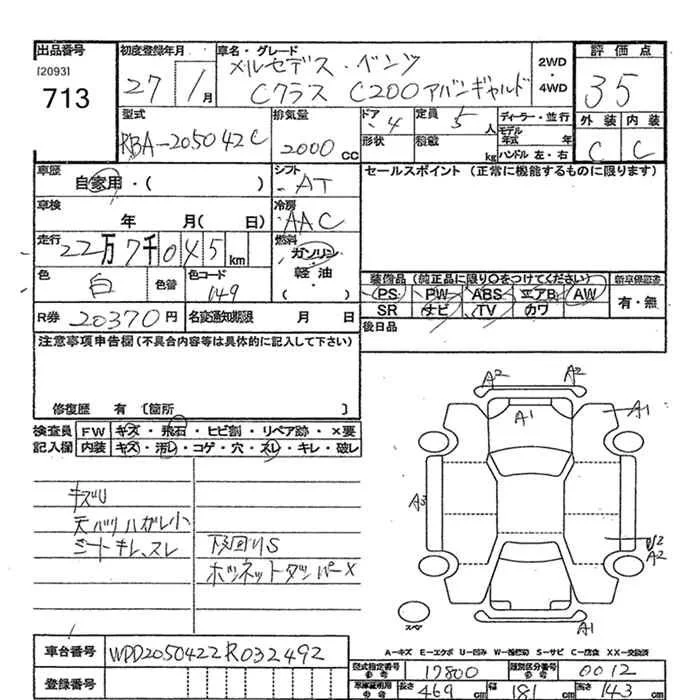 出品番号 初度登録年月 車名・グレード 2WD・4WD 評価点
[2093] 713
27 1月
メルセデス・ベンツ
Cクラス C200アバンギャルド
35
型式 排気量 ドア 定員 ディーラー・並行 外装 内装
RBA-205042C 2000CC 4 5人 C C
形状 積載 kg モデル年式 年
ハンドル 左・右
車歴 自家用・( ) シフト AT セールスポイント(正常に機能するものに限ります)
車検 年 月(日) 冷房 AAC
走行 22万7千045km 燃料 ガソリン・軽油・( )
色 白 色替 色コード 149
装備品(純正品に限り○をつけてください) 新車保証書
PS PW ABS エアB AW 有・無
SR ナビ TV カワ
R券 20370円 名変通知期限 月 日 後日品
注意事項申告欄(不具合内容等は具体的に記入して下さい)
修復歴 有 〔箇所 〕
検査員 FW キズ・飛石・ヒビ割・リペア跡・×要
記入欄 内装 キズ・汚レ・コゲ・穴・スレ・キレ・破レ
キズU
天バリハガレ小
シートキレ、スレ 下回りS
ボンネットダンパーX
A2 A2
A1 A1
A3
U2
A2
スペア A1
A−キズ E−エクボ U−凹み W−補修跡 S−サビ C−腐食 XX−交換済
車台番号 WDD2050422R032492
型式指定番号 参考 17800 類別区分番号 参考 0012
登録番号
車庫証明用 参考 長さ 469cm 幅 181cm 高さ 143cm